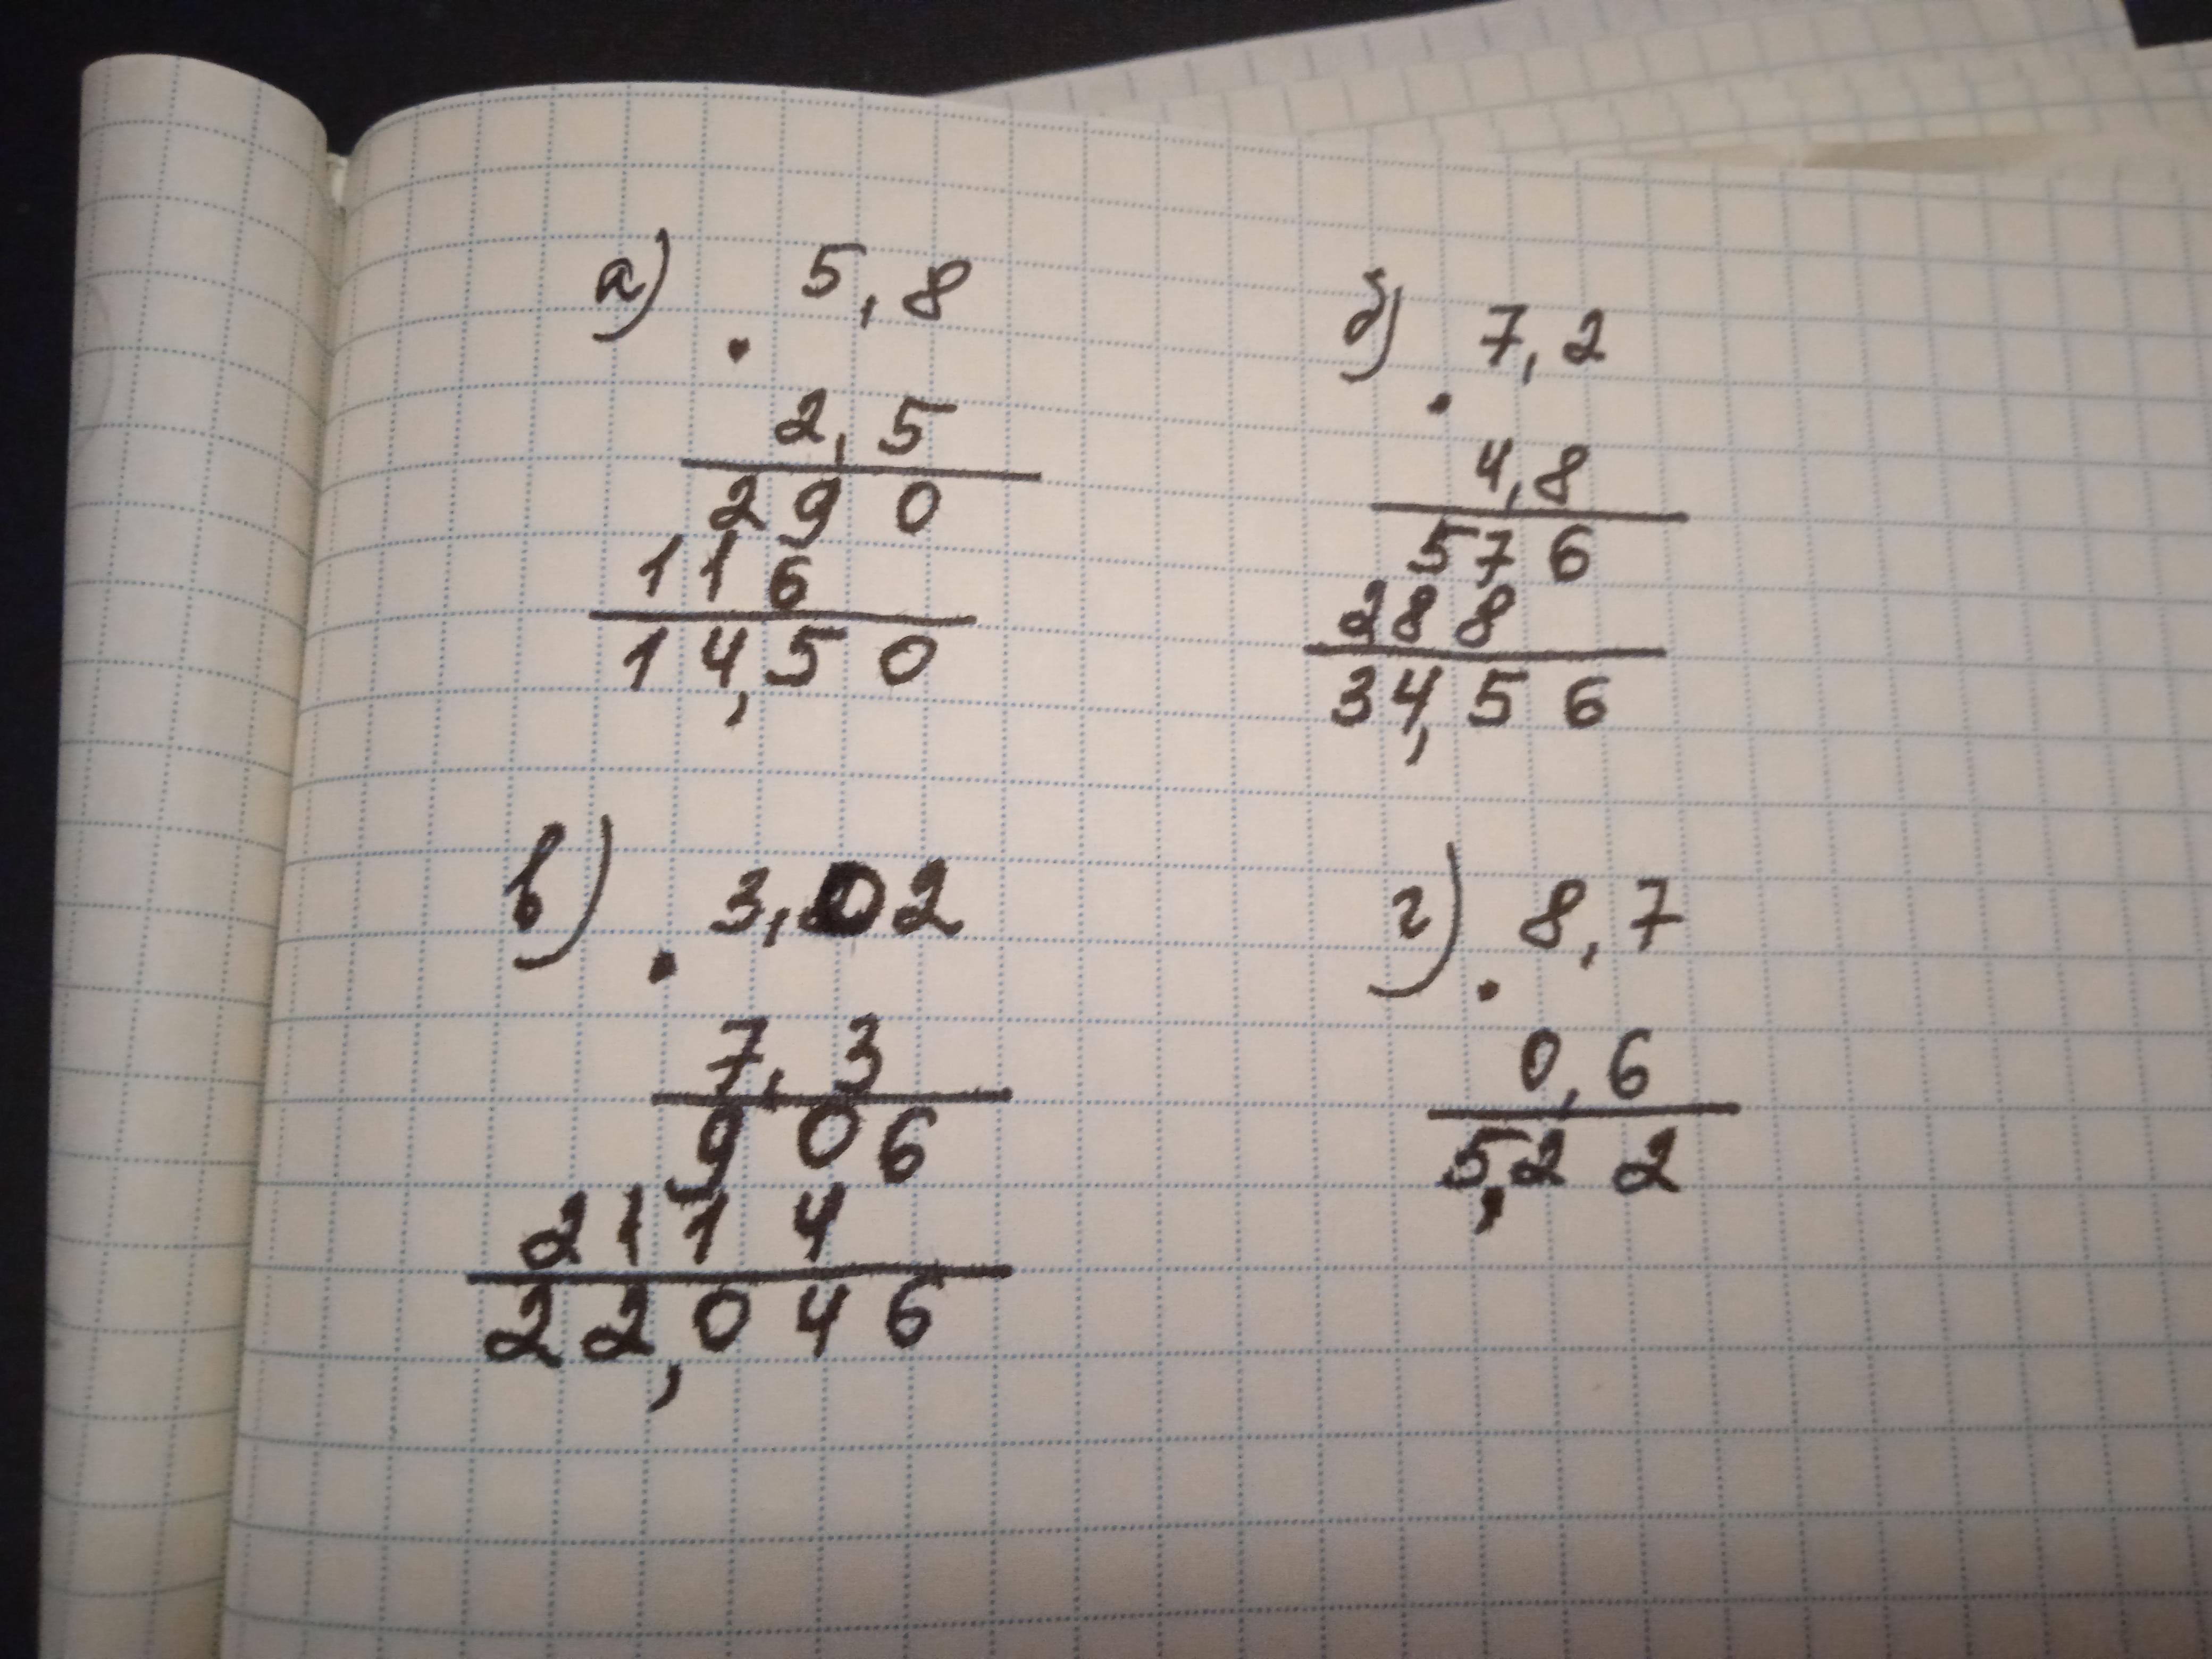 а) . 5,8
2,5
290
116
14,50
б) . 7,2
4,8
576
288
34,56
в) . 3,02
7,3
906
2114
22,046
г) . 8,7
0,6
5,22